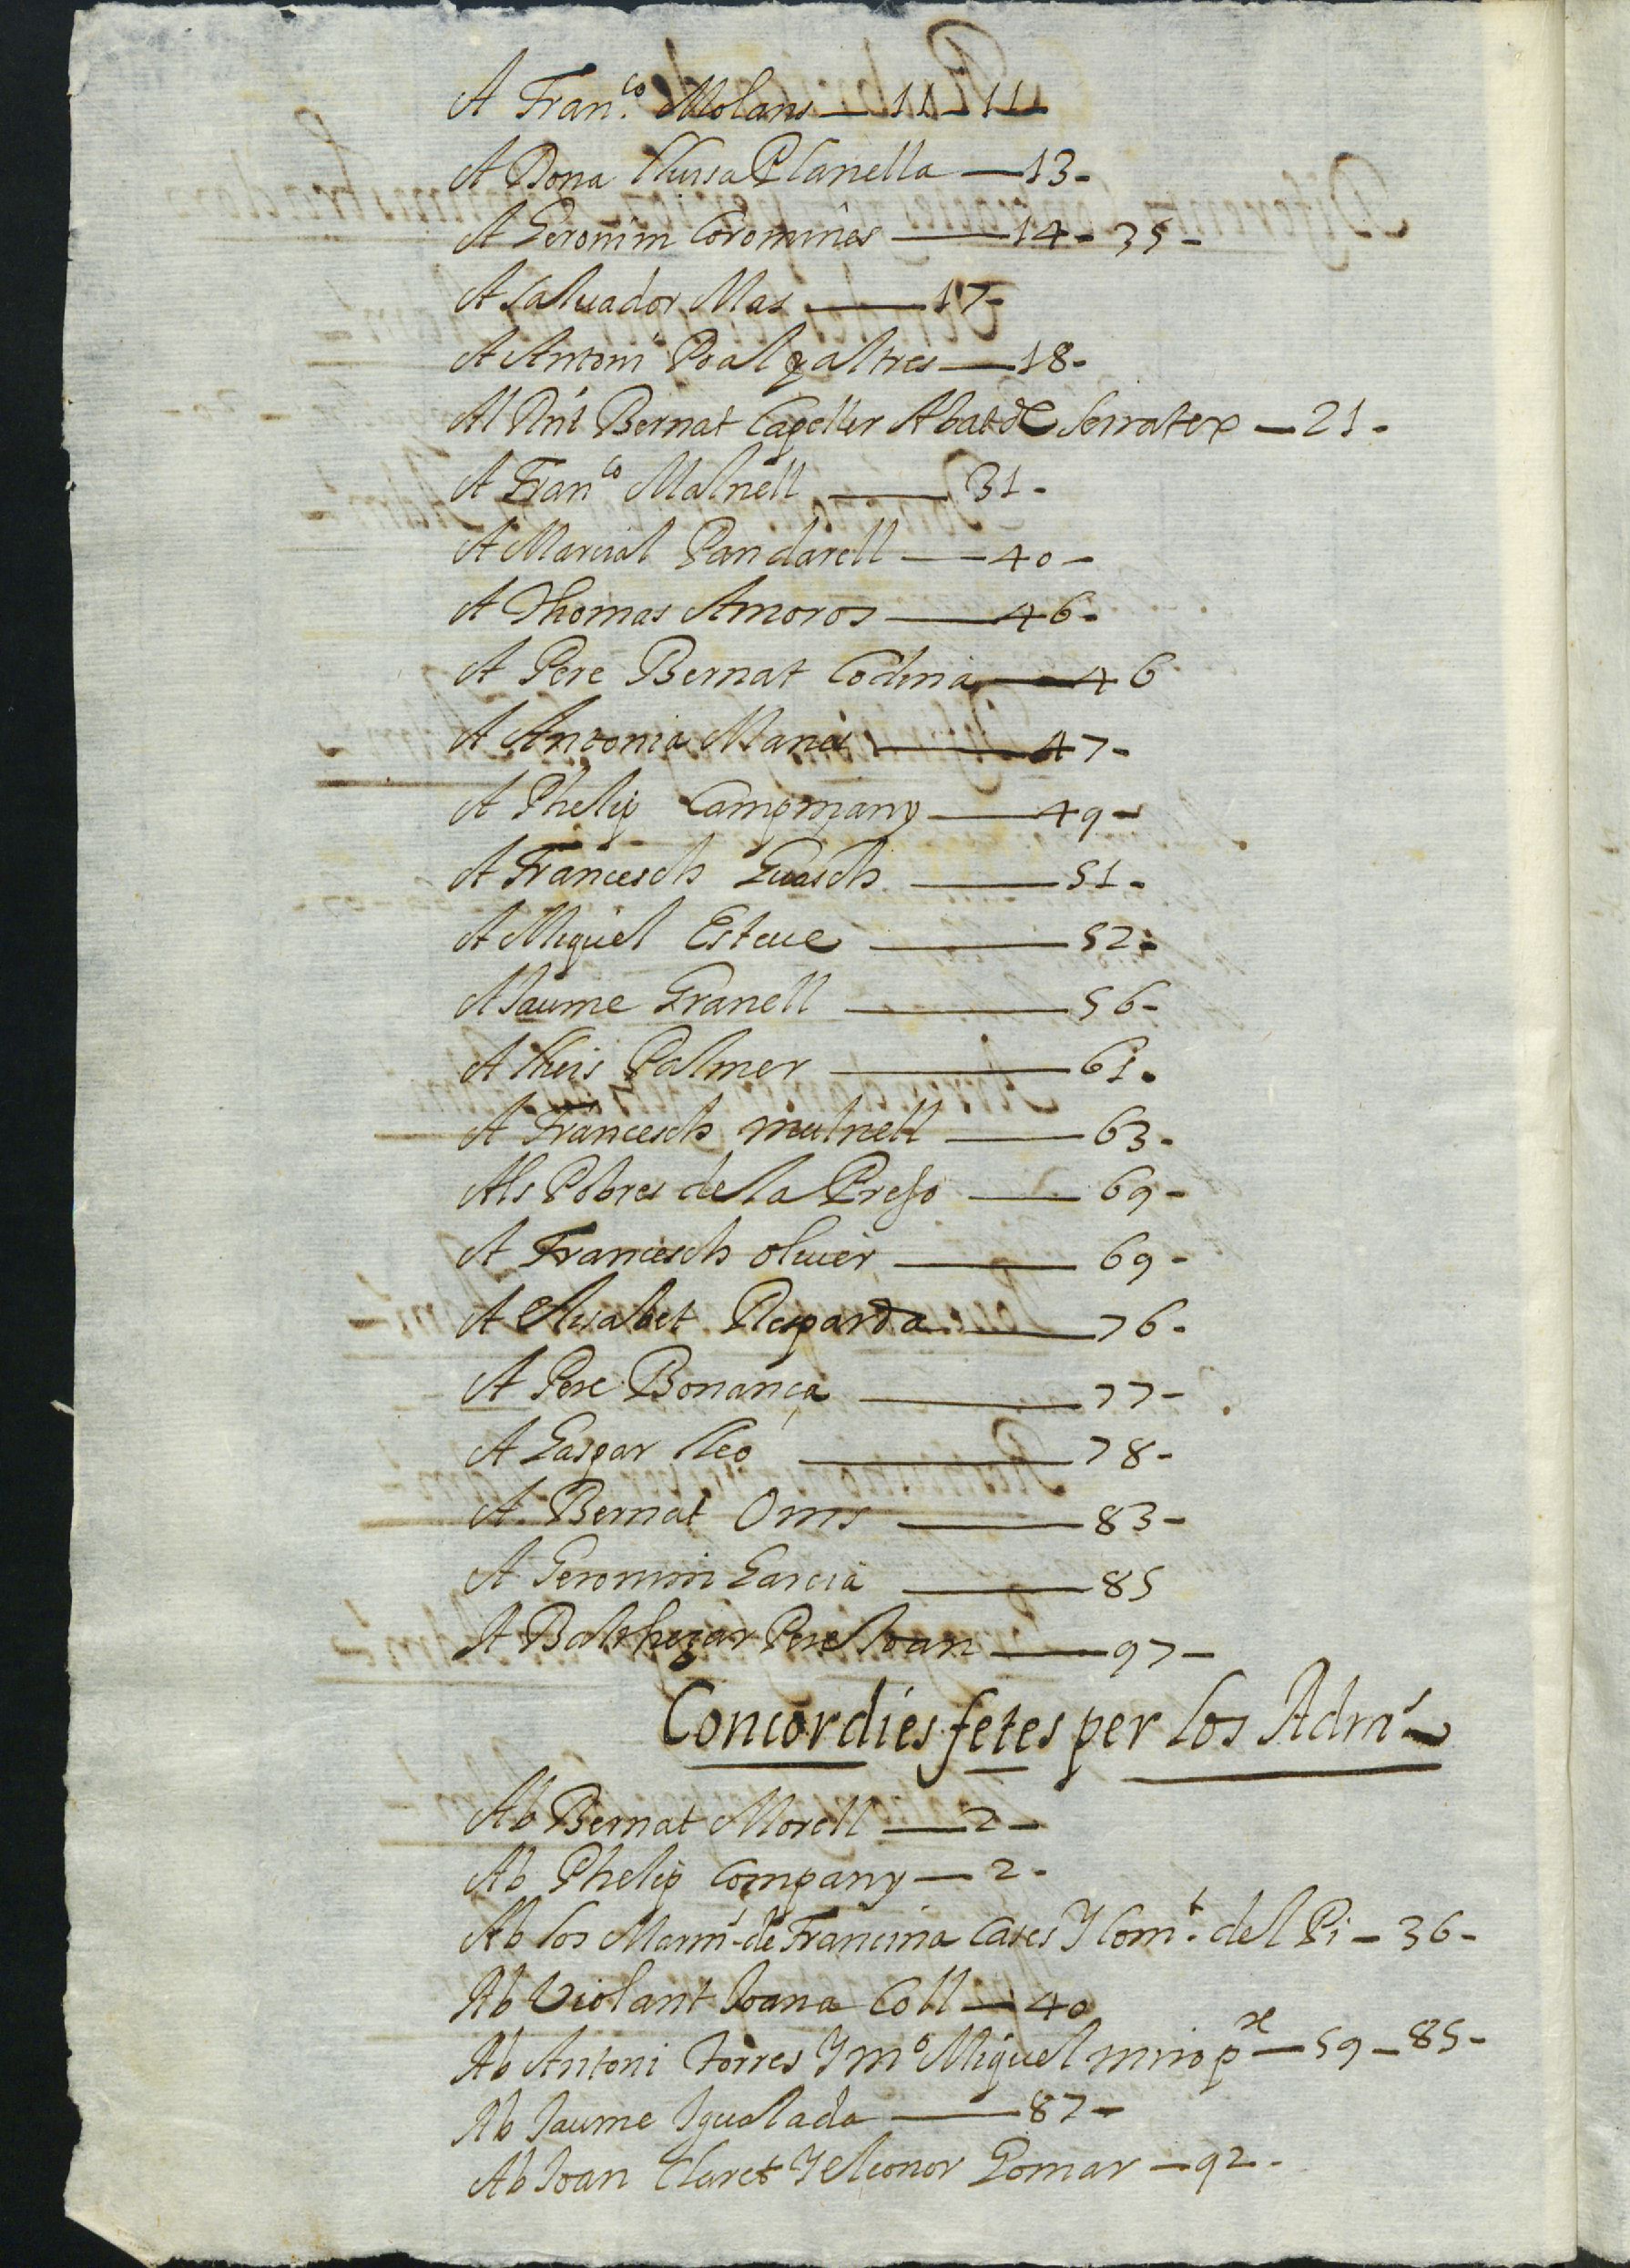 A Fran.co Molans — 11 — 11 —
A Dona Lluisa Planella — 13 -
A Geronim Coromines — 14 - 35 -
A Saluador Mas — 17 -
A Antoni Poal y altres — 18 -
Al Bernat Capeller Abat de Serratex — 21 -
A Fran.co Malnell — 31 -
A Marcial Pandarell — 40 -
A Thomas Amoros — 46 -
A Pere Bernat Codina — 46
A Antonia — 47 -
A Phelip Campmany — 49 -
A Francesch Guasch — 51 -
A Miquel Esteue — 52 -
A Jaume Granell — 56 -
A Lluis Palmer — 61 .
A Francesch mulnell — 63 -
Als Pobres de la Preso — 69 -
A Francesch oliuer — 69 -
A Elisabet — 76 -
A Pere Bonança — 77 -
A Gaspar Lleo — 78 -
A Bernat Oms — 83 -
A Geronim Garcia — 85
A Balthezar Pere Joan — 97 -
Concordies fetes per los Adm̃
Ab Bernat Morell — 2 -
Ab Phelip Company — 2 -
Ab los Marm̃ de Francina Cases Y Com.t del Pi — 36 -
Ab Violant Joana Coll — 40
Ab Antoni Torres Y mº Miquel miro — 59 — 85 -
Ab Jaume Igualada — 87 -
Ab Joan Claret Y Eleonor Pomar — 92 -